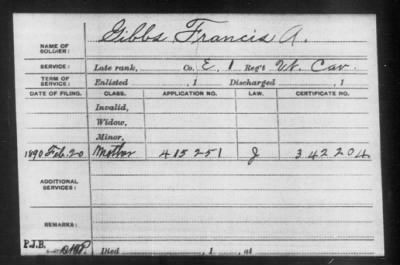 Gibbs Francis A.
NAME OF SOLDIER:
SERVICE: Late rank, Co. E. 1 Reg't Vt. Cav.
TERM OF SERVICE: Enlisted , 1 Discharged , 1
DATE OF FILING. CLASS. APPLICATION NO. LAW. CERTIFICATE NO.
Invalid,
Widow,
Minor,
1890 Feb. 20 Mother 415251 J 342204
ADDITIONAL SERVICES:
REMARKS:
P.J.B.
Died , 1 , at